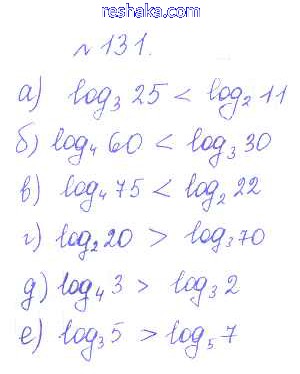 reshaka.com
№131.
а) log₃ 25 < log₂ 11
б) log₄ 60 < log₃ 30
в) log₄ 75 < log₂ 22
г) log₂ 20 > log₃ 70
д) log₄ 3 > log₃ 2
е) log₃ 5 > log₅ 7